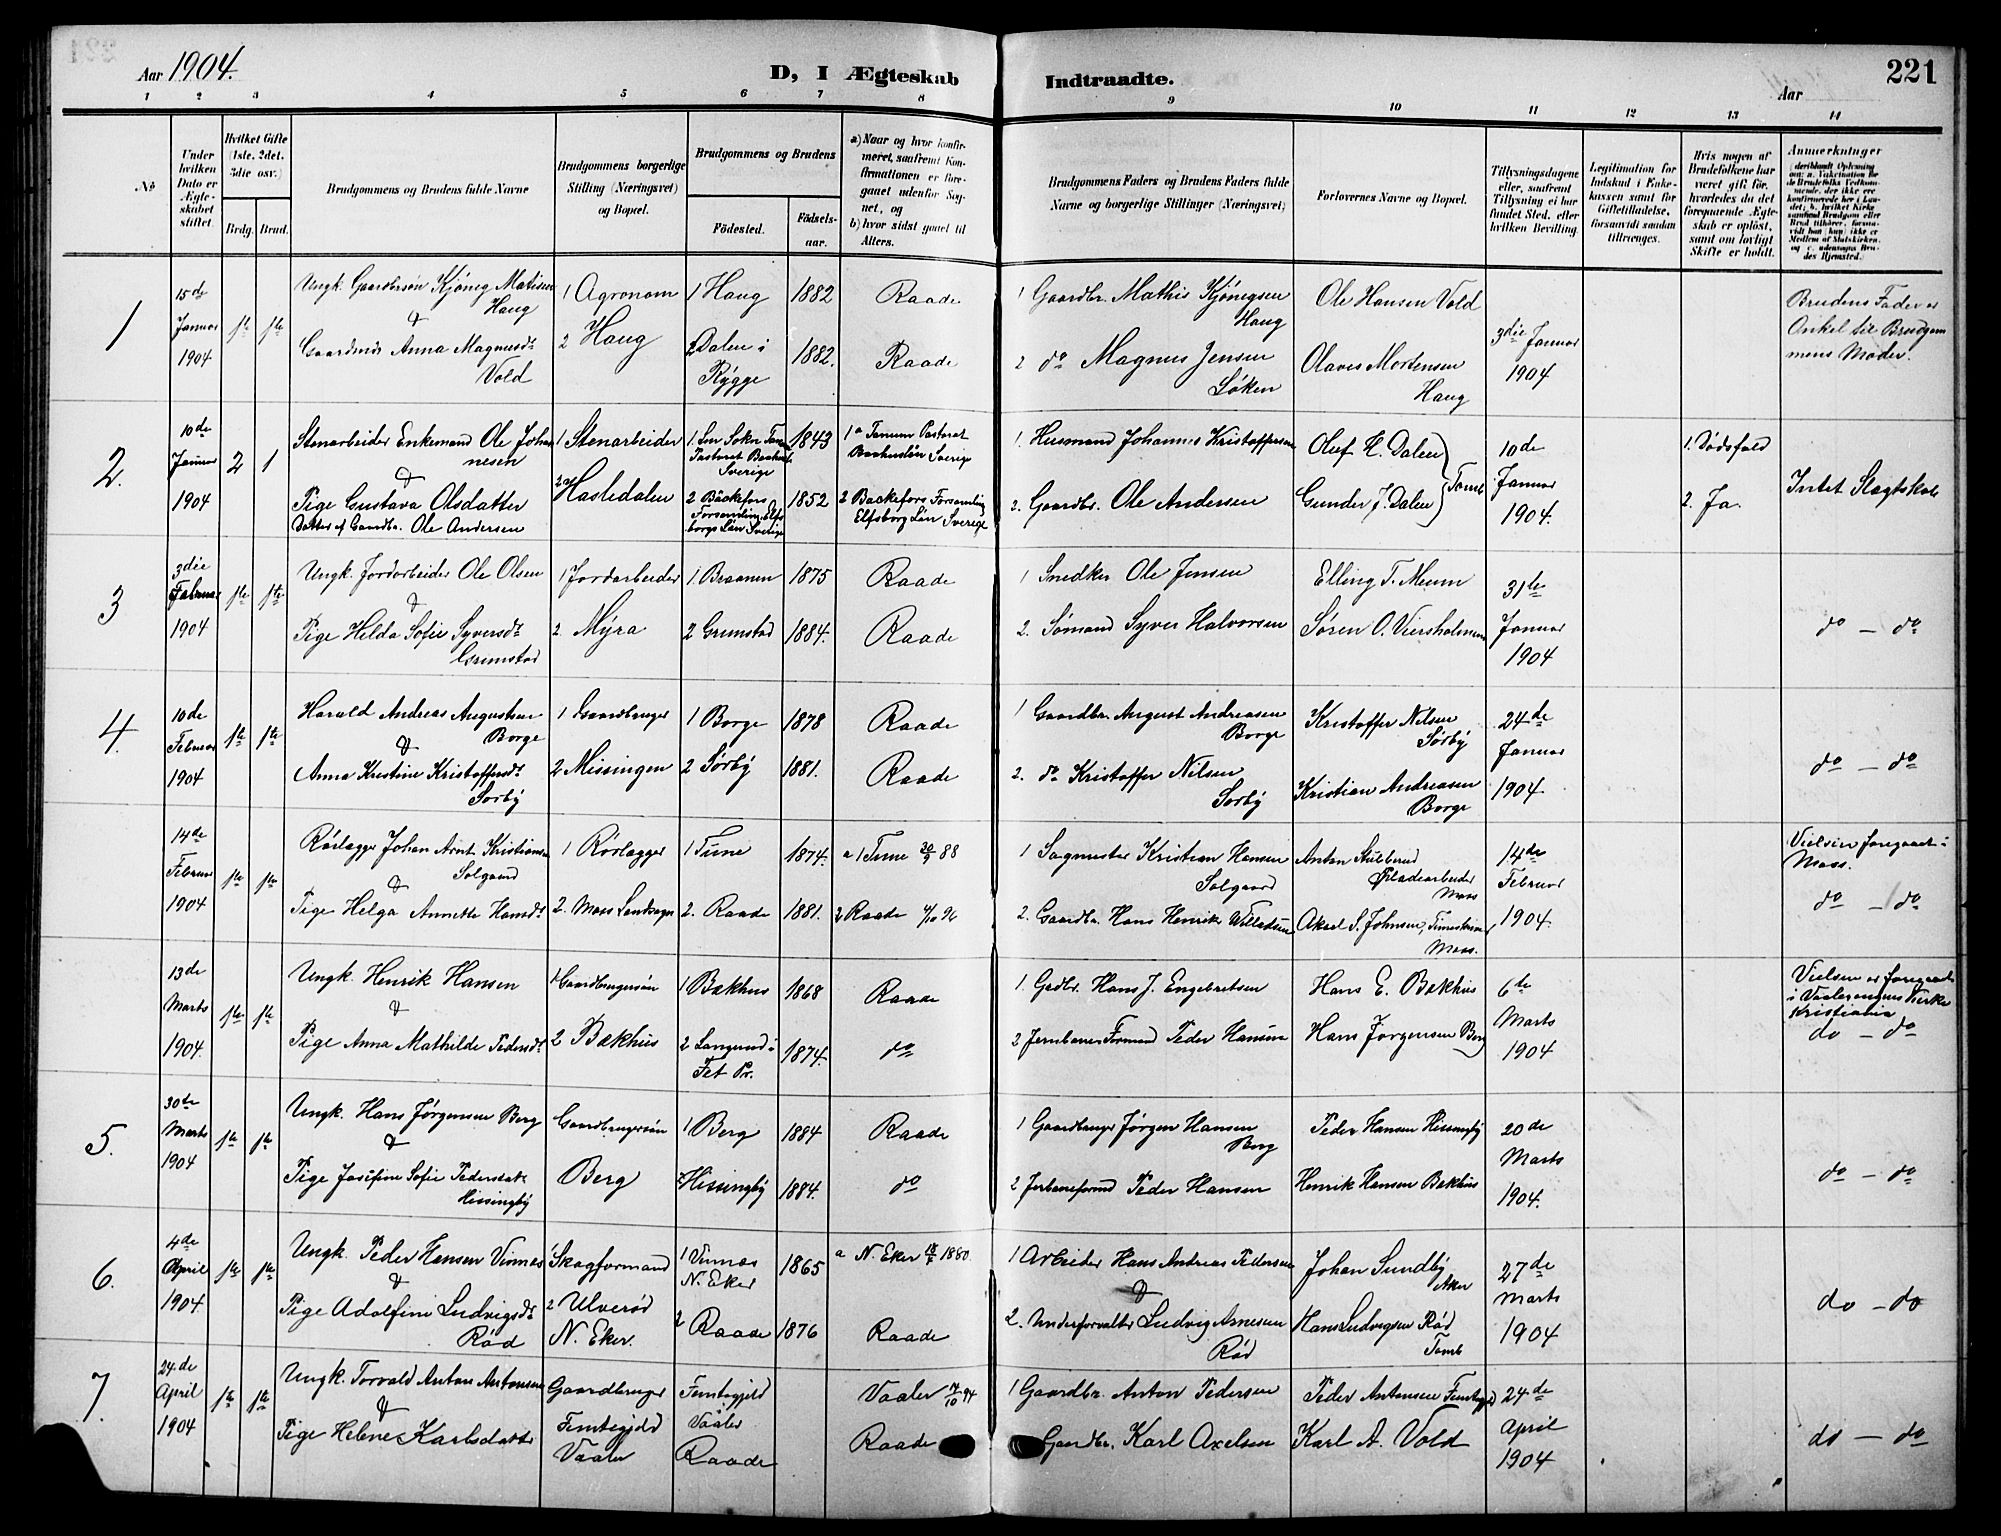 Aar 1904.
D, I Ægteskab
Indtraadte.
Aar
221
1 2 3 4 5 6 7 8 9 10 11 12 13 14
No
Under hvilken Dato er Ægteskabet stiftet.
Hvilket Gifte (1ste, 2det, 3die osv.)
Brdg. Brud.
Brudgommens og Brudens fulde Navne
Brudgommens borgerlige Stilling (Næringsvei) og Bopæl.
Brudgommens og Brudens
Fødested.
Fødselsaar.
a) Naar og hvor konfirmeret, saafremt Konfirmationen er foregaaet udenfor Sognet, og
b) hvor sidst gaaet til Alters.
Brudgommens Faders og Brudens Faders fulde Navne og borgerlige Stillinger (Næringsvei)
Forlovernes Navne og Bopæl.
Tillysningsdagene eller, saafremt Tillysning ei har fundet Sted, efter hvilken Bevilling.
Legitimation for Indskud i Enkekassen samt for Giftetilladelse, forsaavidt saadan tiltrænges.
Hvis nogen af Brudefolkene har været gift før, hvorledes da det foregaaende Ægteskab er opløst, samt om lovligt Skifte er holdt.
Anmerkninger
1
15de Januar 1904
1ste 1ste
Ungk. Gaardbrsøn Kjønig Matisen Haug
&
Gaardmds Anna Magnusdt Vold
1 Agronom
2 Haug
1 Haug
2 Dalen i Rygge
1882
1882.
Raade
Raade
1 Gaardbr. Mathis Kjønigsen Haug
2 do Magnus Jensen Løken
Ole Hansen Vold
Olaves Mortensen Haug
3die Januar 1904
Brudens Fader er Onkel til Brudgommens Moder.
2.
10de Januar 1904
2 1
Stenarbeider Enkemand Ole Johannesen
&
Pige Gustava Olsdatter
Datter af Gaardbr. Ole Andersen
1 Stenarbeider
2 Hasledalen
1. Sokn Pastorat Sverige
2 Bäckefors Forsamling Elfsborgs Län Sverige
1843
1852
1 a Tanum Pastorat Sverige
2 Backefors Forsamling Elfsborg Län Sverige
1. Husmand Johannes Kristoffersen
2. Gaardbr. Ole Andersen
Oluf H. Dalen
Gunder J. Dalen
Tomb
10de Januar 1904.
1. Dødsfald
2. Ja.
Intet Slagtskab
3
3die Februar 1904
1ste 1ste
Ungk. Jordarbeider Ole Olsen
&
Pige Hilda Sofie Syversdt Grimstad
1 Jordarbeider
2. Myra
1. Braanen
2 Grimstad
1875
1884.
Raade
Raade
1 Snedker Ole Jensen
2. Sømand Syver Halvorsen
Elling T. Meum
Søren O. Viersholmen
31te Januar 1904
do — do
4.
10de Februar 1904
1ste 1ste
Harald Andreas Augustsen Borge
&
Anna Kristine Kristoffersdt Sørby
1 Gaardbruger
2 Missingen
1 Borge
2 Sørby
1878
1881.
Raade
Raade
1 Gaardbr. August Andreasen Borge
2. do Kristoffer Nilsen Sørby
Kristoffer Nilsen Sørby
Kristian Andreasen Borge
24de Januar 1904
do — do
14de Februar 1904
1ste 1ste
Rørlægger Johan Arnt Kristiansen Solgaard
&
Pige Helga Annette Hansdt
1 Rørlægger
2. Moss Landsogn
1 Tune
2. Raade
1874.
1881.
a 1 Tune 30/9 88
2 Raade 4/10 96
1 Sagmester Kristian Hansen Solgaard
2. Gaardbr. Hans Henrik Willadsen
Anton Stubberud Pladearbeider Moss
Aksel S. Johnsen, Moss.
14de Februar 1904.
Vielsen foregaaet i Moss.
do — do
13de Marts 1904.
1ste 1ste
Ungk. Henrik Hansen
&
Pige Anna Mathilde Pedersdt
1 Gaardbrugersøn
2 Bakhus
1 Bakhus
2 Langund i Fet Pr.
1868
1874.
Raade
do
1. Grdbr. Hans J. Engebretsen
2 Jernbaneformand Peder Hansen
Hans E. Bakhus
Hans Jørgensen Berg
6te Marts 1904
Vielsen er foregaaet i Vaalerengens Kirke Kristiania
do — do
5.
30te Marts 1904
1ste 1ste
Ungk. Hans Jørgensen Berg
&
Pige Josefine Sofie Pedersdatt Hissingby
Gaardbrugersøn
Berg
1 Berg
2 Hissingby
1884
1884.
Raade
do
1 Gaardbruger Jørgen Hansen Berg
2 Jerbaneformd Peder Hansen
Peder Hansen Hissingby
Henrik Hansen Bakhus
20de Marts 1904.
do — do
6.
4de April 1904
1ste 1ste
Ungk. Peder Hansen Vinnes
&
Pige Adolfine Ludvigsdt Rød
1 Skogformand
2 Ulverød N. Eker.
1 Vinnes N. Eker
2 Raade
1865
1876
a N. Eker 18/7 1880.
Raade
1 Arbeider Hans Andreas Pedersen
&
2. Underforvalter Ludvig Arnesen Rød
Johan Sundby Aker
Hans Ludvigsen Rød Tomb
27de Marts 1904
do — do
7.
24.de April 1904
1ste 1ste
Ungk. Torvald Anton Antonsen
&
Pige Helene Karlsdatter
Gaardbruger
Femtegjeld Vaaler
Femtegjeld i Vaaler
Raade
Vaaler 14/10 94
Raade
1 Gaardbr. Anton Pedersen
Gaardbr. Karl Axelsen
Peder Antonsen Femtegjeld
Karl A. Vold
24de April 1904
do — do